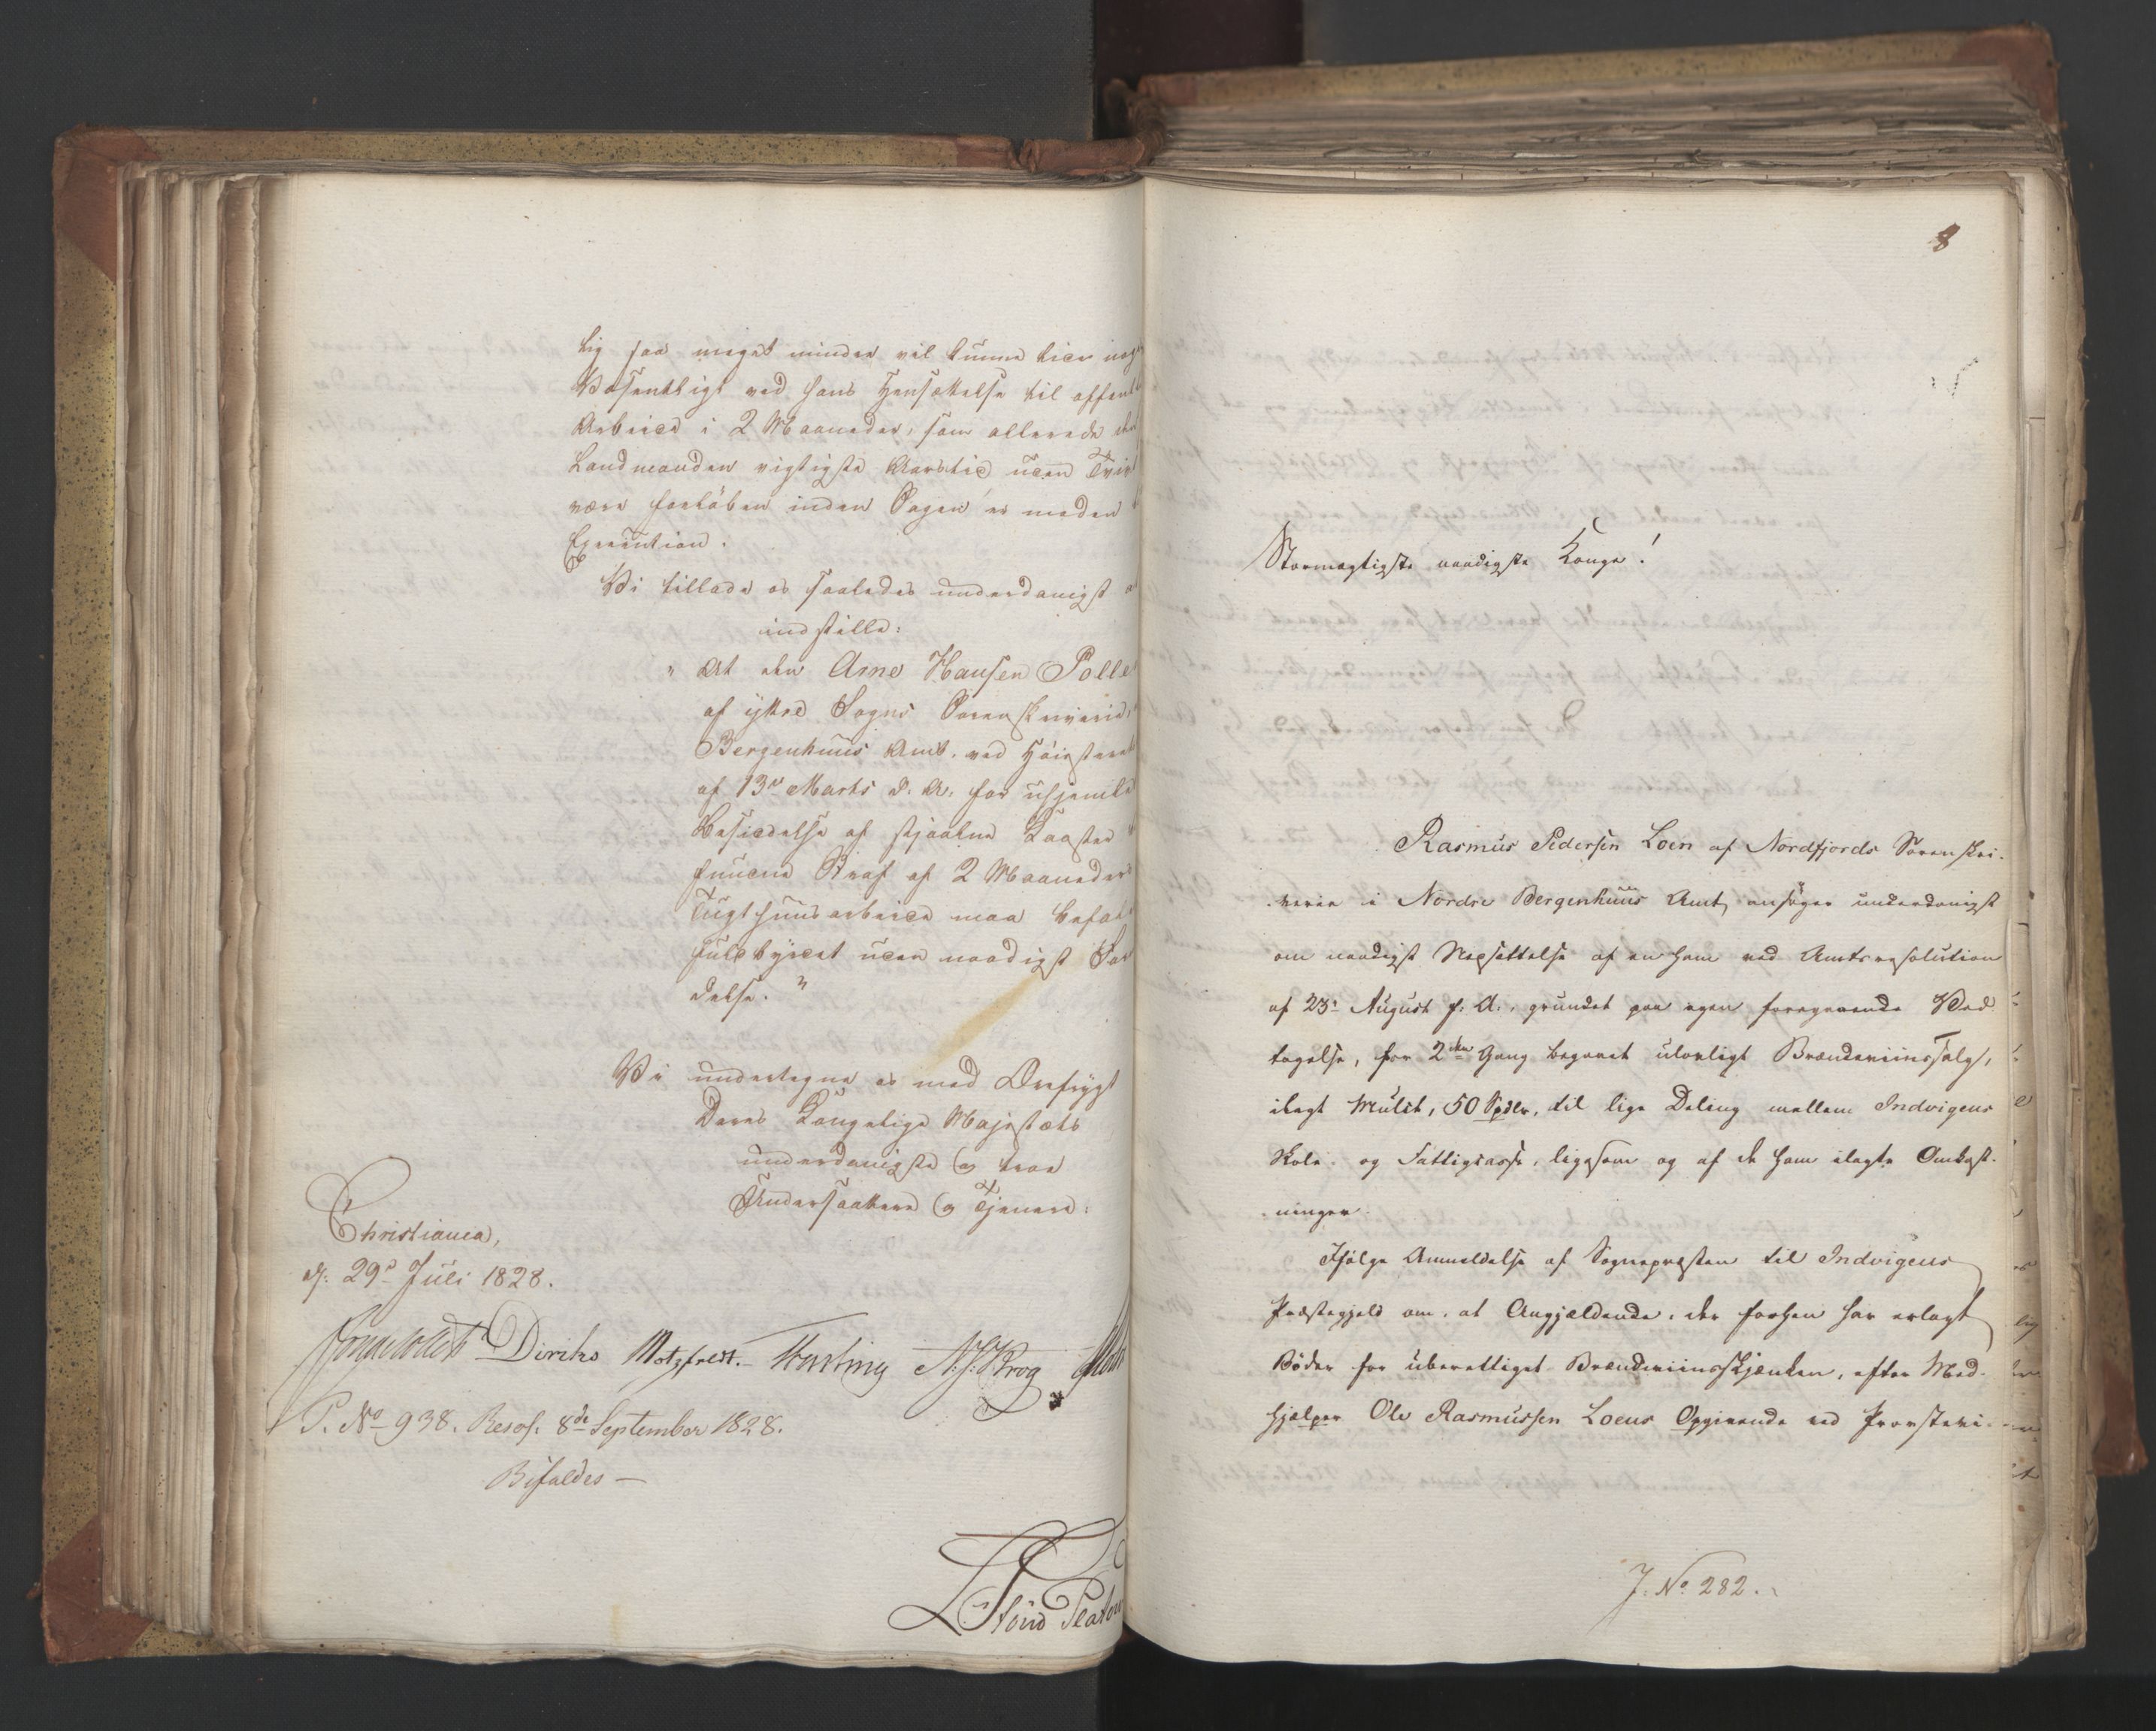 lig saa meget mindre vil kunne lide no
Væsentligt ved hans Hensættelse til offent
Arbeide i 2 Maaneder, som allerede
Landmanden vigtigste Aarstid uden Tvivl
være forløben inden Sagen er moden
Execution.
Vi tillade os saaledes underdanigst
indstille:
" At den Arne Hansen Polle
af yttre Sogns Sorenskriverie,
Bergenhuus Amt, ved Høiesteret
af 13de Marts d. A. for
Besiddelse af stjaalne Kaaster
fundne Straf af 2 Maaneders
Tugthuusarbeide maa befal
fuldbyrdet uden naadigst
delse. "
Vi undertegne os med Ærefrygt
Deres Kongelige Majestæts
underdanigste og troe
Undersaattere og Tjenere:
Christiania,
d: 29de Juli 1828.
Diriks Motzfeldt. Fasting Krog
P. No 938. Resol. 8de September 1828.
Bifaldes —
8
Stormægtigste naadigste Konge!
Rasmus Pedersen Loen af Nordfjords Sorenskri-
verie i Nordre Bergenhuus Amt, ansøger underdanigst
om naadigst Nedsættelse af en ham ved Amtsresolution
af 23de August f: A:, grundet paa egen foregaaende Ved-
tagelse, for 2den Gang begaaet ulovligt Brændeviinssalg,
ilagt Mulct, 50 Spdlr, til lige Deling mellem Indvigens
Skole- og Fattigcasse, ligesom og af de ham ilagte Omkost-
ninger.
Ifølge Anmeldelse af Sognepræsten til Indvigens
Præstegjeld om, at Angjældende, der forhen har erlagt
Bøder for uberettiget Brændeviinsskjænken, efter Med-
hjælper Ole Rasmussen Loens Opgivende ved Provsteri-
J. No 282.